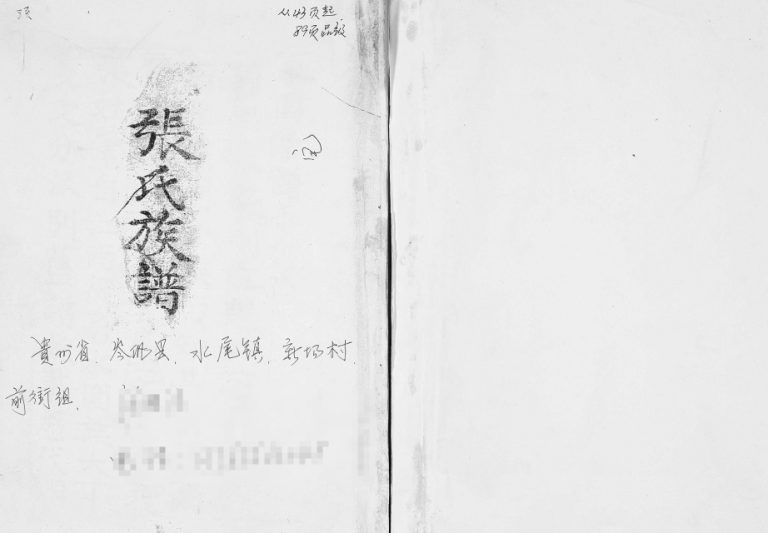 从43页起
89页品毅
張氏族譜
貴州省.岑巩县.水尾镇.新场村.
前街组.